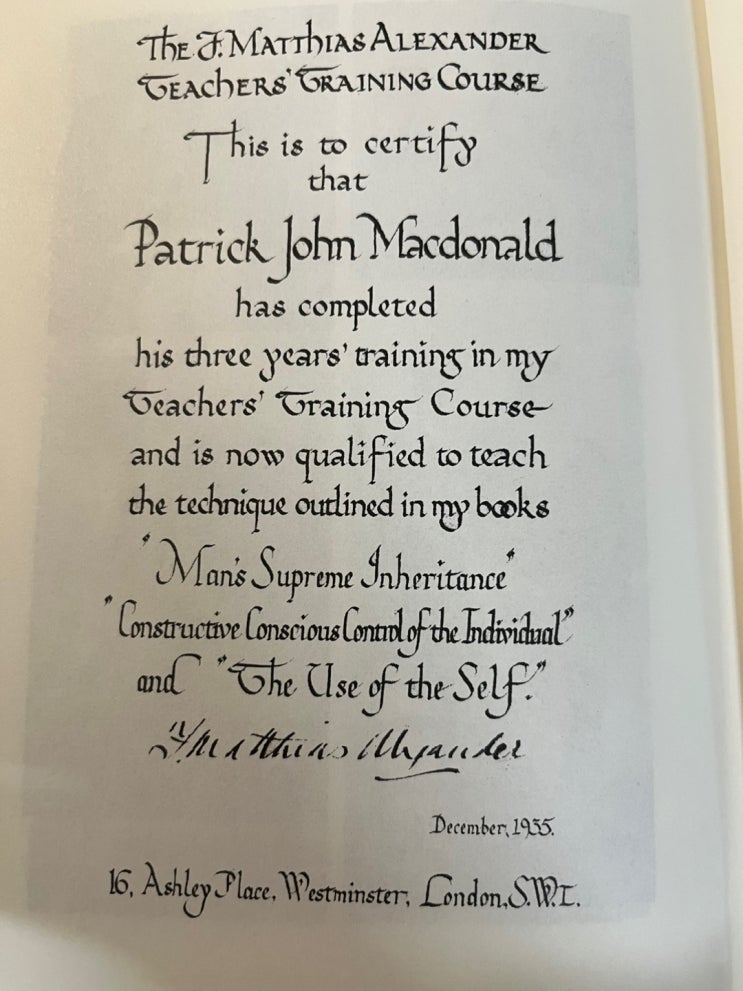 The F. Matthias Alexander
Teachers' Training Course
This is to certify
that
Patrick John Macdonald
has completed
his three years' training in my
Teachers' Training Course
and is now qualified to teach
the technique outlined in my books
"Man's Supreme Inheritance"
"Constructive Conscious Control of the Individual"
and "The Use of the Self."
F. Matthias Alexander
December, 1935.
16, Ashley Place, Westminster, London, S.W.1.